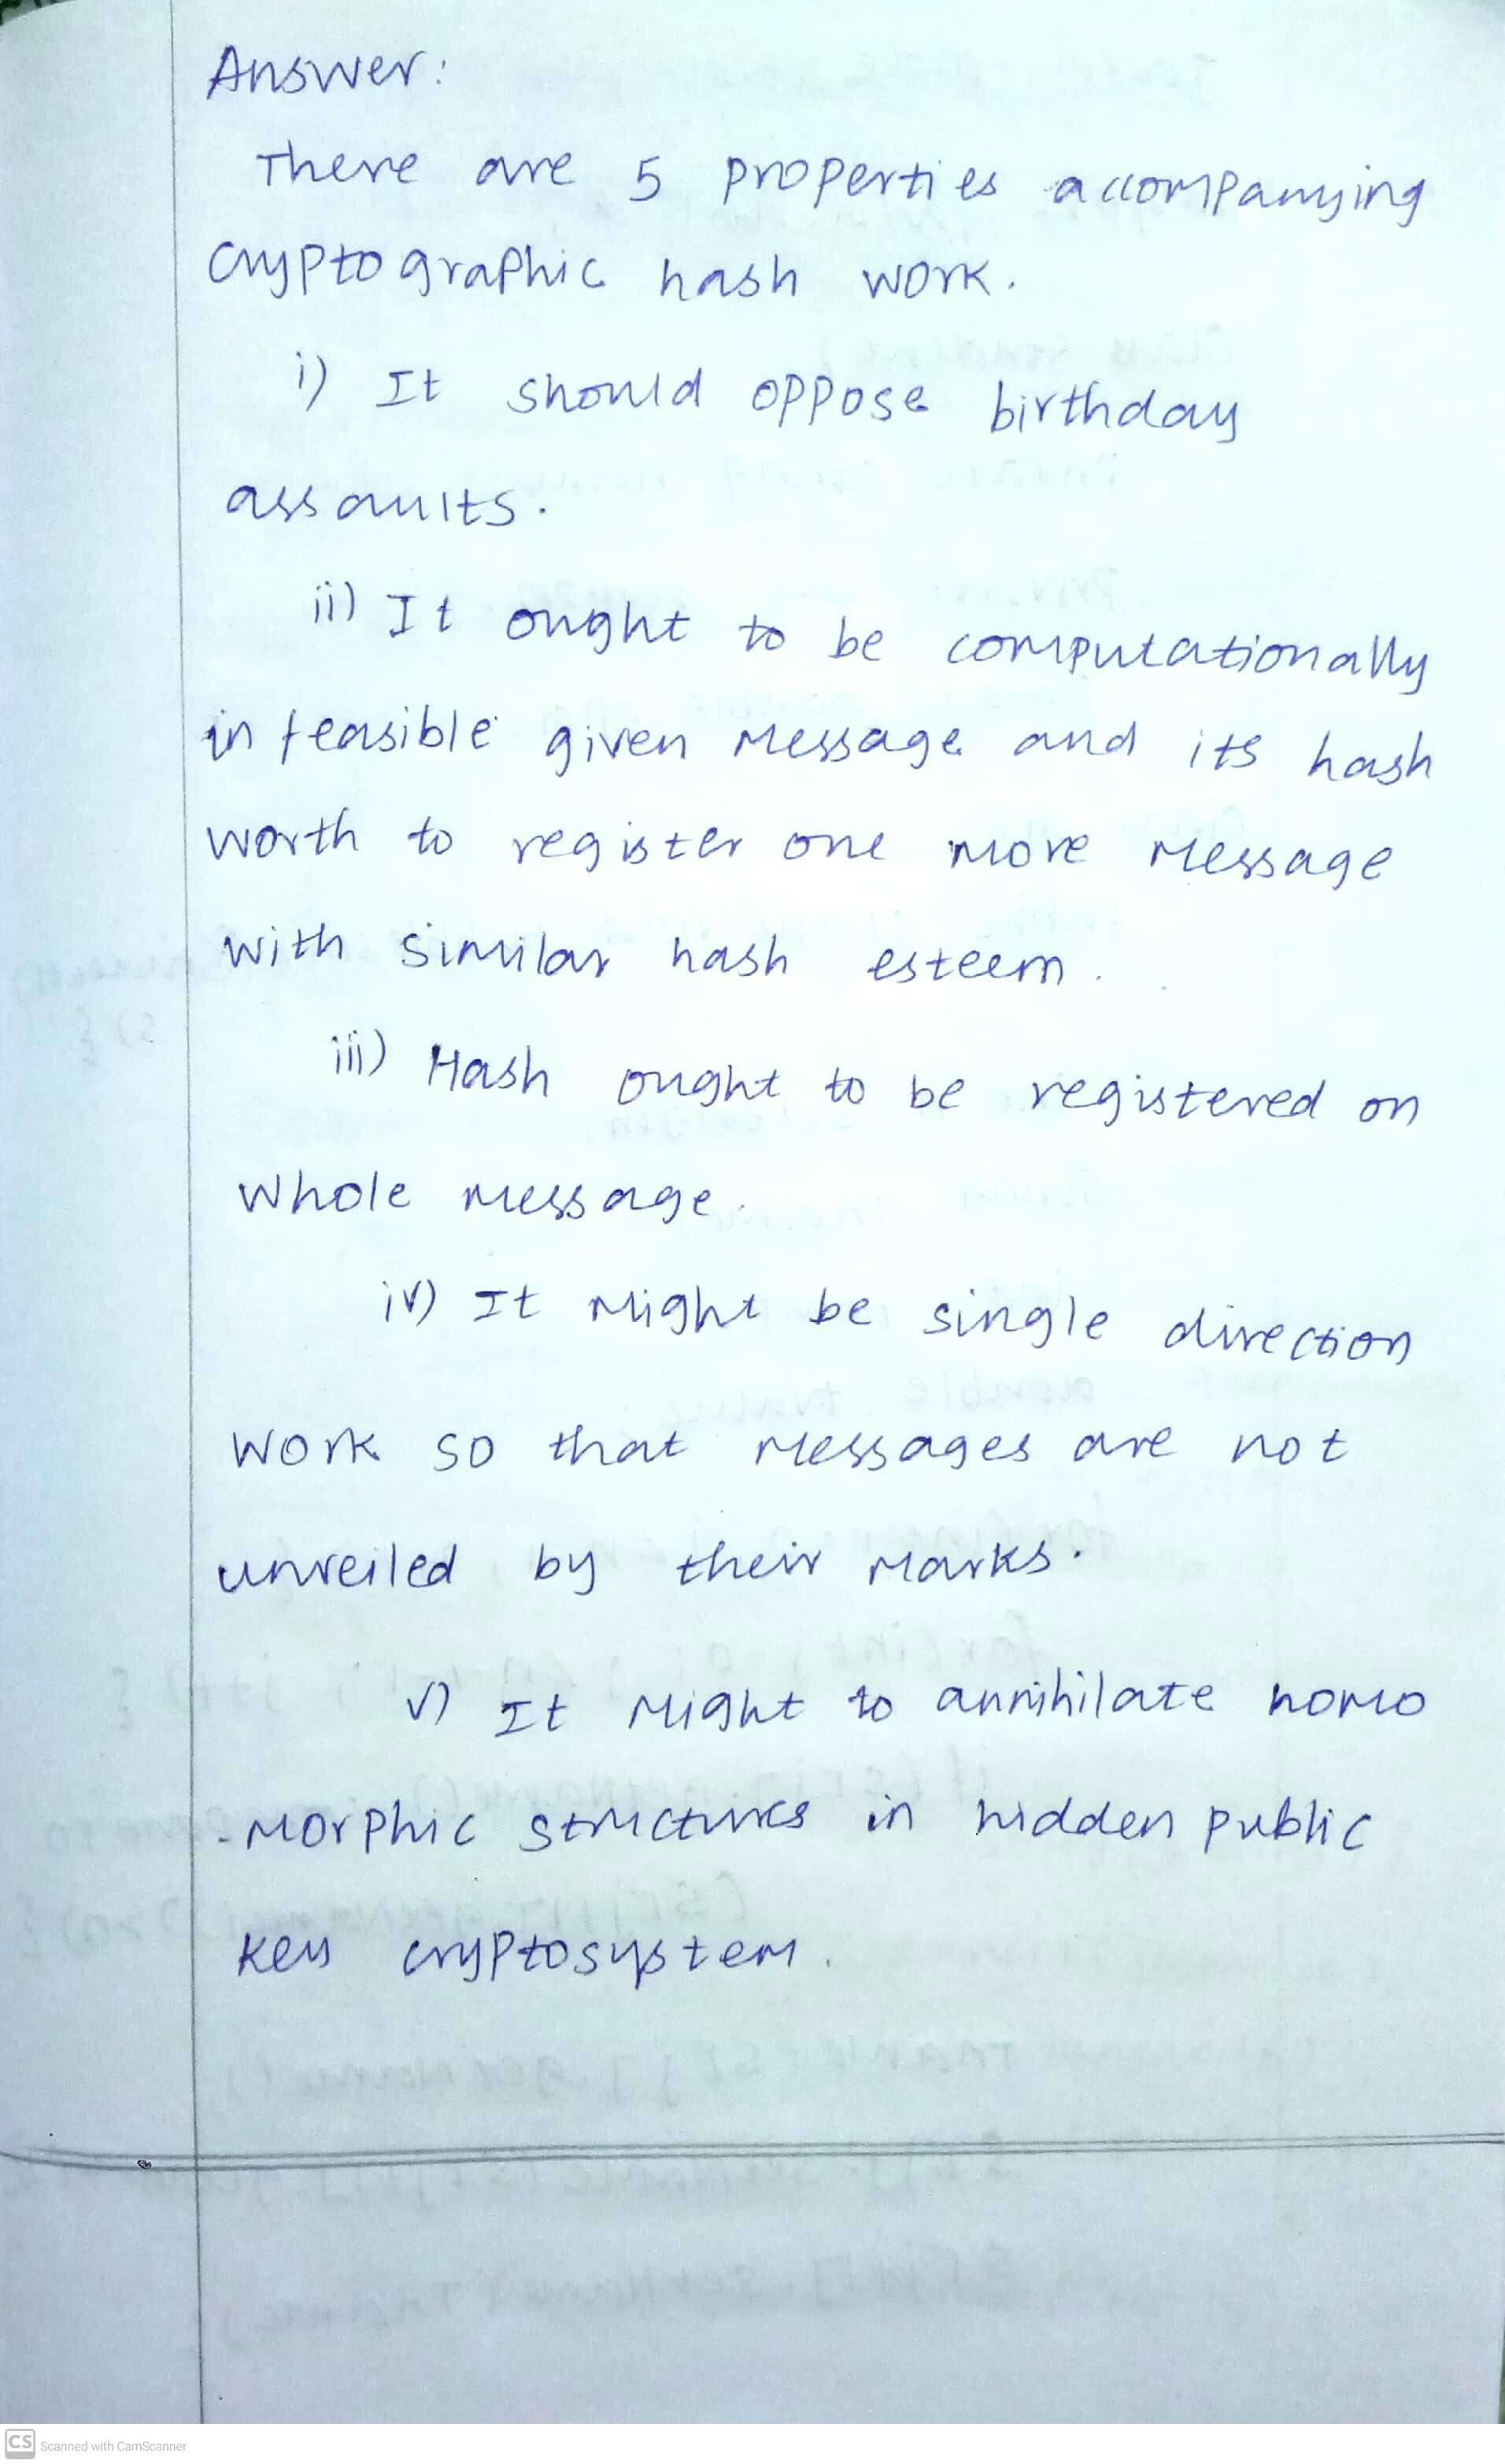 Answer:
There are 5 properties accompanying
cryptographic hash work.
i) It should oppose birthday
assaults.
ii) It ought to be computationally
infeasible given message and its hash
worth to register one more message
with similar hash esteem.
iii) Hash ought to be registered on
whole message.
iv) It might be single direction
work so that messages are not
unveiled by their marks.
v) It might to annihilate homo
-morphic structures in hidden public
key cryptosystem.
CS Scanned with CamScanner